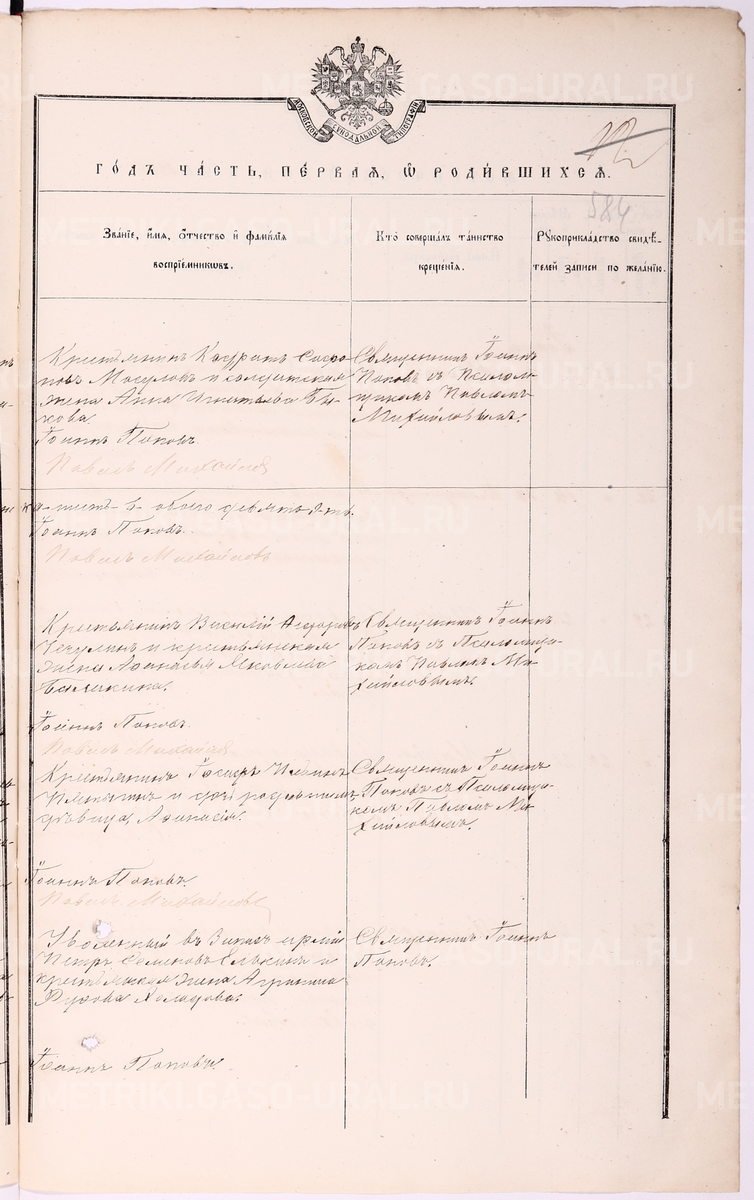 МОСКОВСКОЙ СѴНОДАЛЬНОЙ ТИПОГРАФІИ
584
ГО́ДЪ ЧА́СТЬ, ПЕ́РВАЯ, Ѽ РОДИ́ВШИХСЯ.
Зва́нїе, и҆́мя, Ѻ҆́тчество и҆ фами́лїя
воспрїе́мниковъ.
Кто̀ соверша́лъ та́инство
креще́нїя.
Рꙋкоприкла́дство свидѣ́-
телей за́писи по жела́нїю.
Крестьянинъ Кодратъ Софро
новъ Мосуновъ и солдатская
жена Анна Игнатьева Бы-
кова.
Іоаннъ Поповъ.
Павелъ Михайловъ
Священникъ Іоаннъ
Поповъ съ Псалом-
щикомъ Павломъ
Михайловымъ.
обоего девять
Іоаннъ Поповъ.
Павелъ Михайловъ
Крестьянинъ Василій Федоровъ
и крестьянская
жена Афанасья Яковлева
Балакина.
Іоаннъ Поповъ.
Павелъ Михайловъ
Священникъ Іоаннъ
Поповъ съ Псаломщи-
комъ Павломъ Ми-
хайловымъ.
Крестьянинъ Іосифъ Ильинъ
и
дѣвица, Афанасія.
Іоаннъ Поповъ.
Павелъ Михайловъ
Священникъ Іоаннъ
Поповъ съ Псаломщи-
комъ Павломъ Ми-
хайловымъ.
Уволенный въ Запасъ арміи
Петръ Семеновъ Елькинъ и
крестьянская жена Агрипина
Холодова.
Іоаннъ Поповъ.
Священникъ Іоаннъ
Поповъ.
METRIKI.GASO-URAL.RU